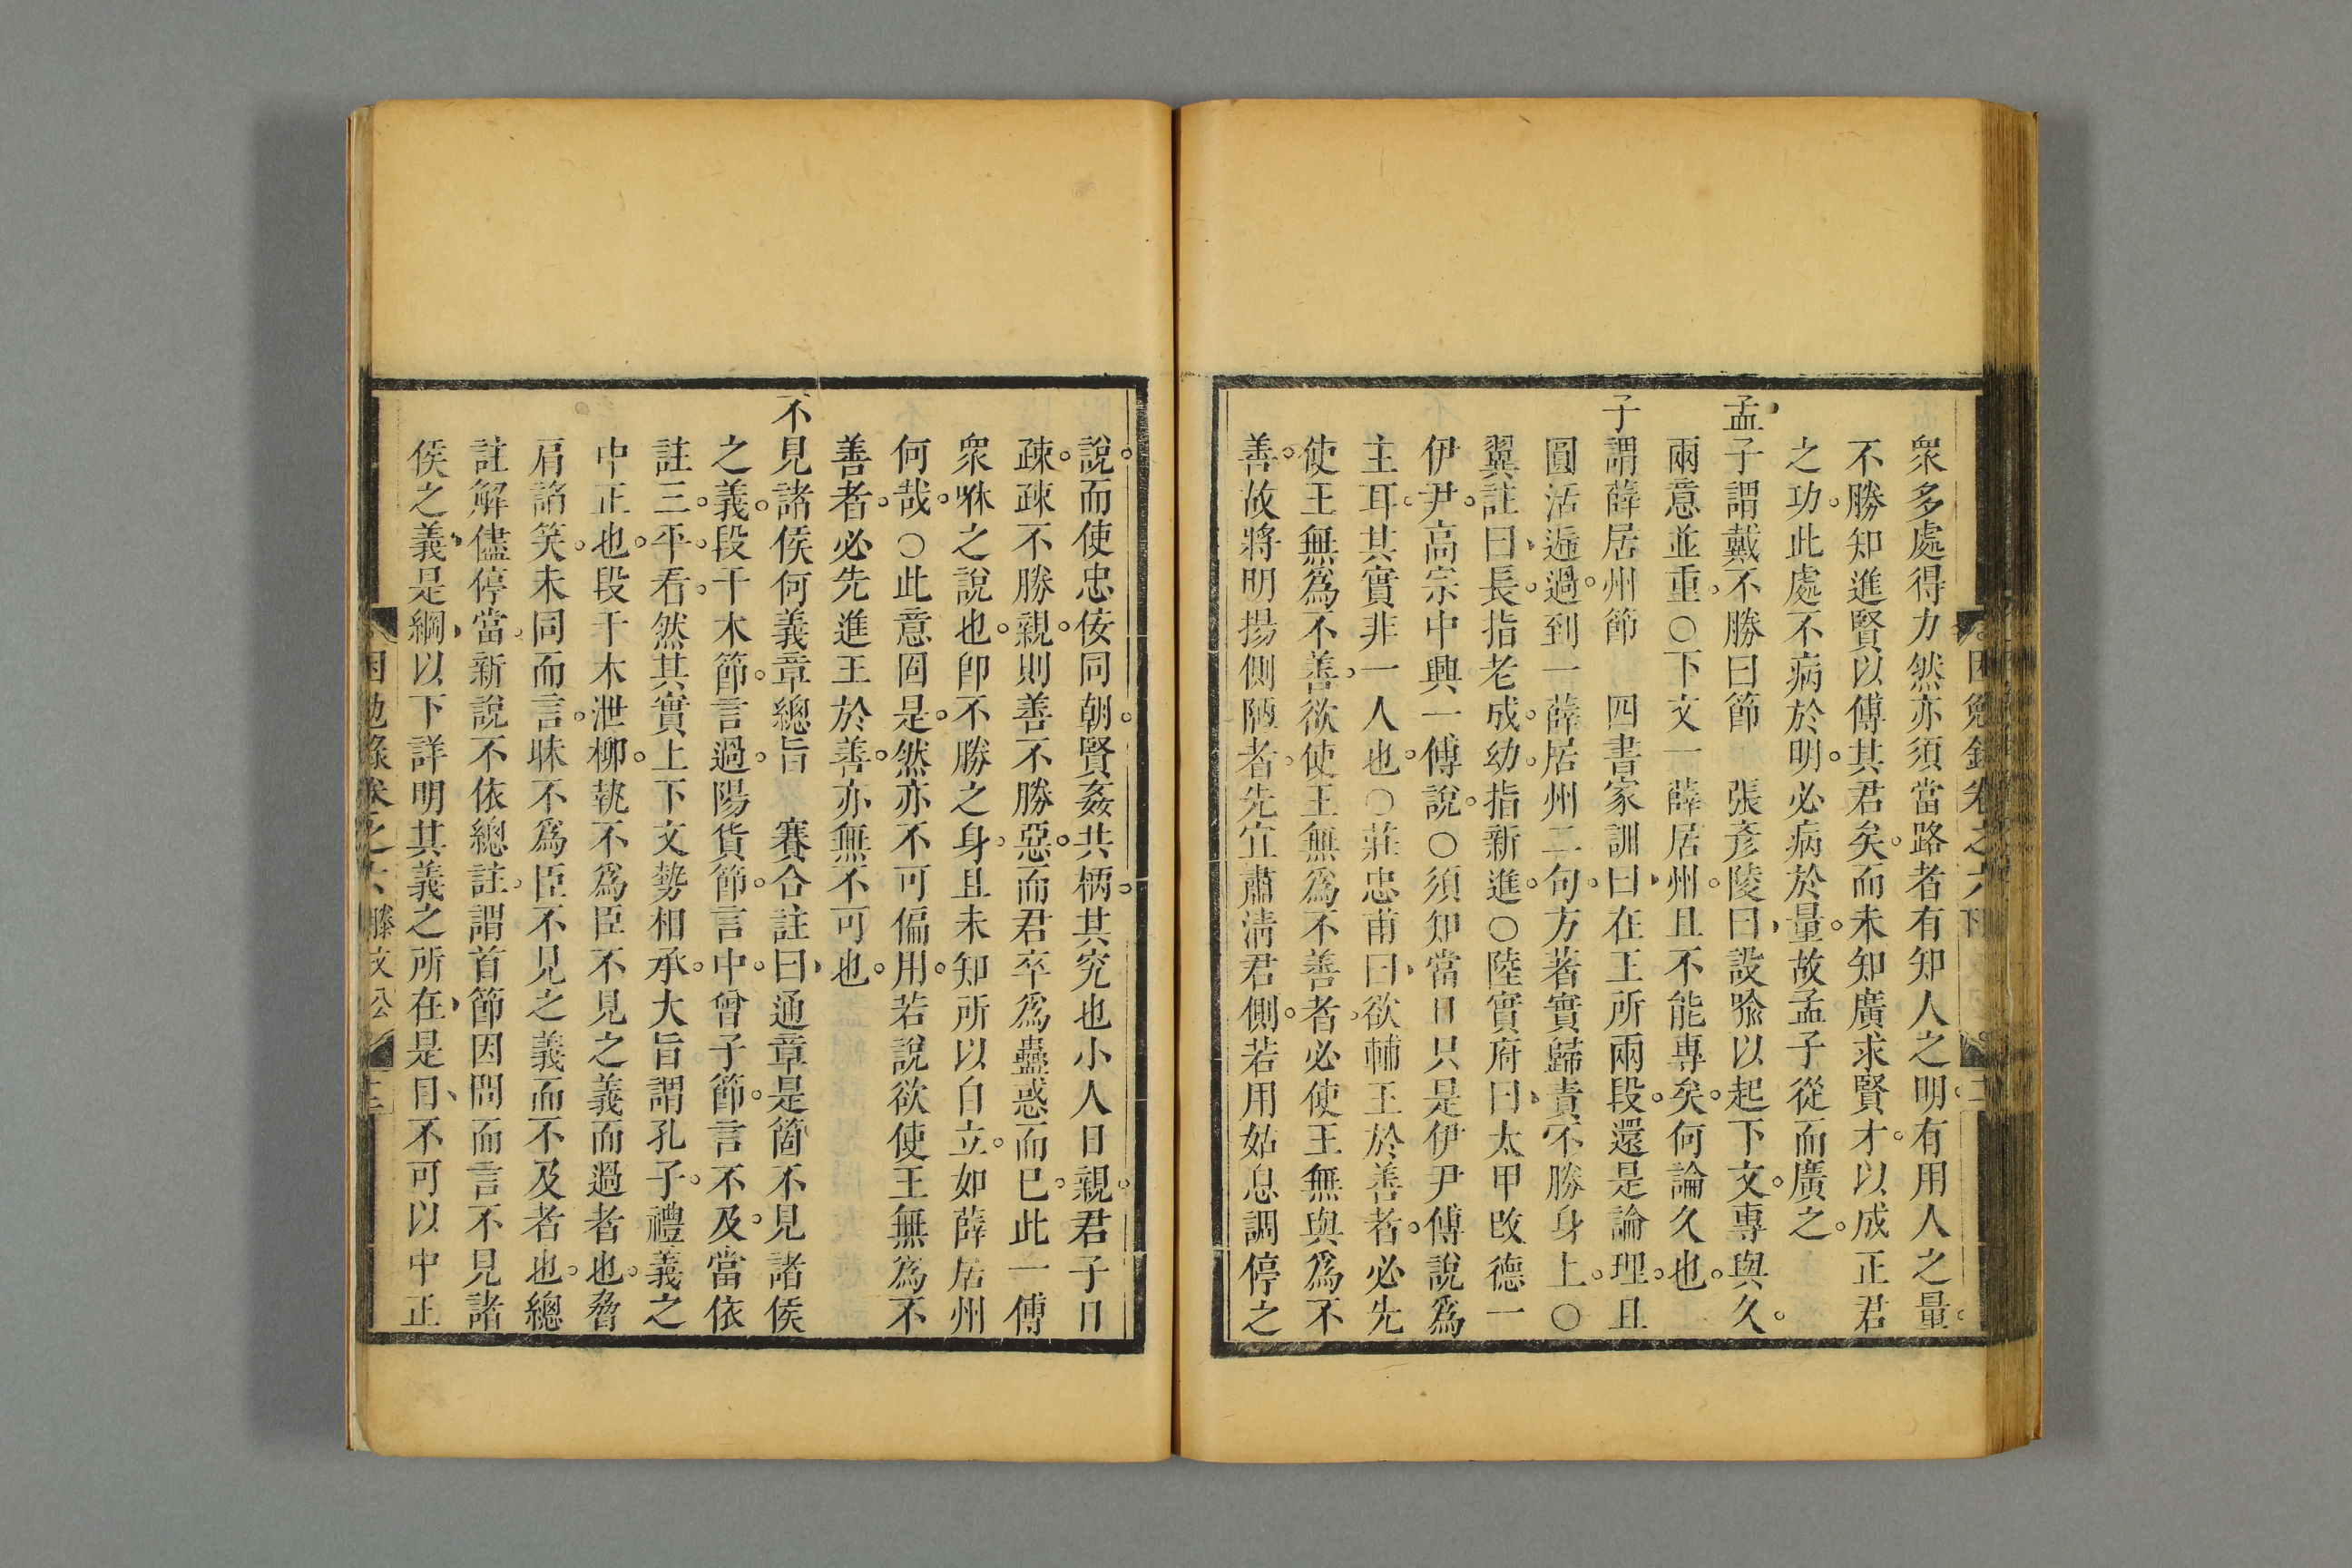 衆多處得力然亦須當路者有知人之明有用人之量
不勝知進賢以傅其君矣而未知廣求賢才以成正君
之功此處不病於明必病於量故孟子從而廣之
孟子謂戴不勝曰節　張彥陵曰設喩以起下文專與久
兩意並重○下文一薛居州且不能專矣何論久也
子謂薛居州節　四書家訓曰在王所兩段還是論理且
圓活遞過到一薛居州二句方著實歸責不勝身上○
翼註曰長指老成幼指新進○陸實府曰太甲改德一
伊尹高宗中興一傅說○須知當日只是伊尹傅說爲
主耳其實非一人也○莊忠甫曰欲輔王於善者必先
使王無爲不善欲使王無爲不善者必使王無與爲不
善故將明揚側陋者先宜肅淸君側若用姑息調停之
說而使忠佞同朝賢姦共柄其究也小人日親君子日
疎疎不勝親則善不勝惡而君卒爲蠱惑而已此一傅
衆咻之說也卽不勝之身且未知所以自立如薛居州
何哉○此意固是然亦不可偏用若說欲使王無爲不
善者必先進王於善亦無不可也
不見諸侯何義章總旨　賽合註曰通章是箇不見諸侯
之義段干木節言過陽貨節言中曾子節言不及當依
註三平看然其實上下文勢相承大旨謂孔子禮義之
中正也段干木泄柳執不爲臣不見之義而過者也脅
肩諂笑未同而言昧不爲臣不見之義而不及者也總
註解儘停當新說不依總註謂首節因問而言不見諸
侯之義是綱以下詳明其義之所在是目不可以中正
困勉錄卷之六 滕文公